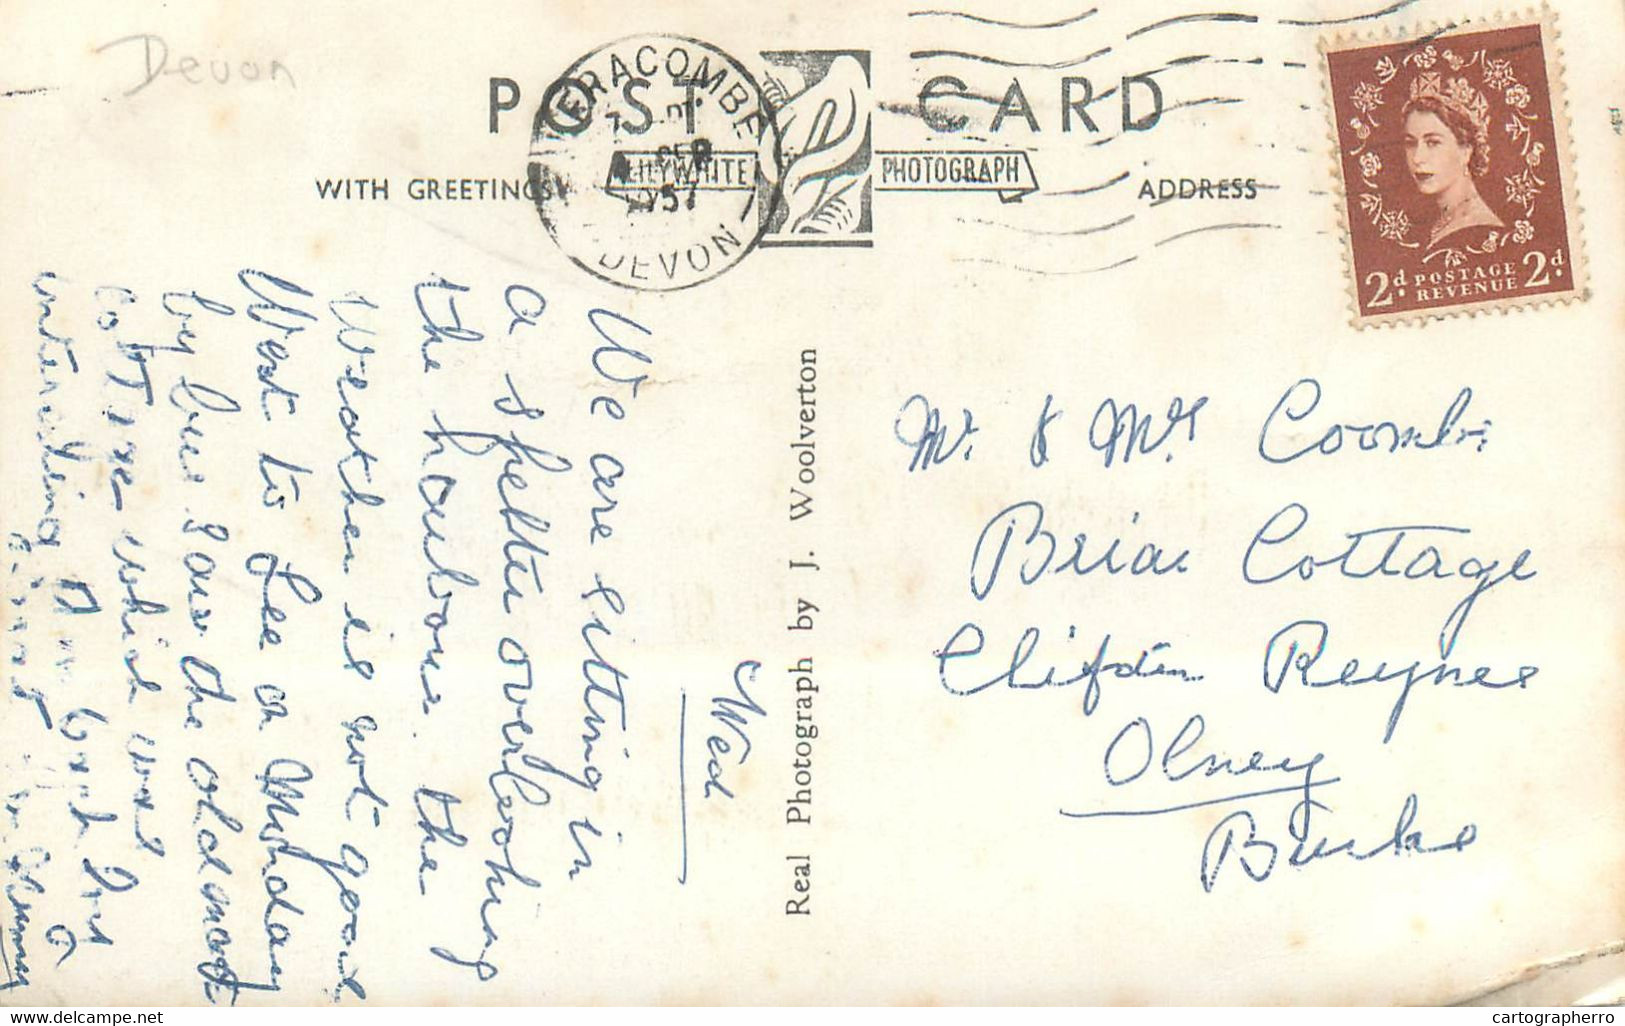 Devon
POST CARD
ILFRACOMBE
SEP
1957
DEVON
LILYWHITE
PHOTOGRAPH
WITH GREETINGS
ADDRESS
2d. POSTAGE REVENUE 2d.
Wed
We are sitting in
a shelter overlooking
the harbour. the
Weather is not good
West to Lee on Monday
by bus & saw the old
Cottage which was
interesting
Real Photograph by J. Woolverton
Mr. & Mrs Coombs
Briar Cottage
Clifton Reynes
Olney
Bucks
cartographerro